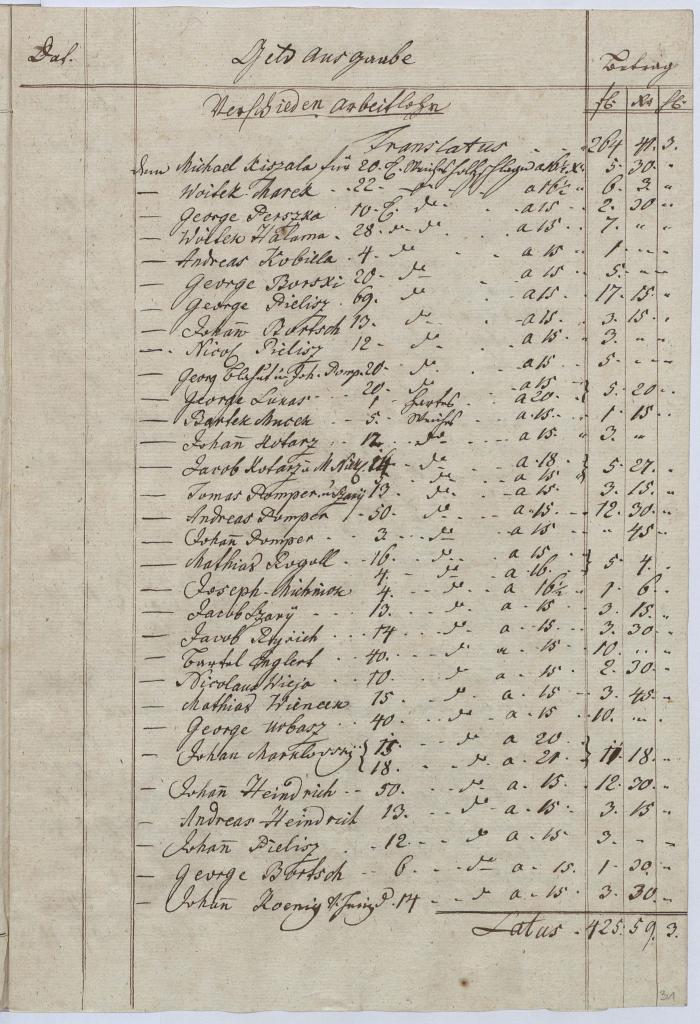 Dat. Geld Ausgaabe Betrag
Verschieden Arbeitlohn fl: Xr ₰:
Translatus - - 264 41. 3.
dem Michael Kiszala für 20. C. Weichholz schlagen a 16½ Xr 5. 30 "
— Woitek Marek - 22 - do a 16½ " 6. 3 "
— George Perszka 10. C. do - a 15 " 2. 30 "
— Woitek Halama - 28. do do a 15 " 7. " "
— Andreas Kobiela - 4. do a 15 " 1. - -
— George Borski 20 - do a 15 " 5. - -
— George Pielisz 69. do - a 15 - 17. 15. "
— Johann Bortsch 13. do - - a 15. - 3. 15. "
— Nicol Pielisz 12 - do - a 15 " 3. " "
— Georg u. Joh. Pomp. 20. do - a 15 " 5 - - "
— George Lukas 20. do a 15 } 5. 20 "
— Bartek Mucek 1. hartes a 20 -
5. Weiches - a 15. - 1. 15 "
— Johann Kotarz 12. - do - a 15 " 3. " -
— Jacob Kotarz u M 14 - do - a 18. } 5. 27. "
— Tomas Pomper u Szary 5 do a 15
13. - do - - a 15. - 3. 15. "
— Andreas Pomper 50. do - - a 15. - 12. 30. "
— Johann Pomper - 3 - do - - a 15 " 45 - "
— Mathias Rogoll - 16. - do - a 15 } 5 4. "
4. - do - a 16.
— Joseph 4. - do - a 16½ - 1. 6. "
— Jacob Szary - - 13. - do - a - 15 - 3. 15. "
— Jacob - 14 - do - a - 15. - 3. 30 "
— Bartel Englert - 40. - do - a - 15 - 10. " "
— Nicolaus Wieja - 10 - do - a - 15 - 2. 30 "
— Mathias Wiencek 15 - do - a - 15 - 3. 45 "
— George Urbasz - 40 - do - a - 15 - 10. " "
— Johan Marklovsky { 15 - do - a 20 } 11. 18. "
18. - do - a - 21
— Johann Heindrich - 50. - do a - 15. - 12. 30. "
— Andreas Heindrich 13. - do a - 15 - 3. 15 "
— Johann Pielisz - 12. - do a - 15 - 3. - "
— George Bortsch - 6. - do a - 15. - 1. 30. "
— Johann Koenig 14 - do a - 15 - 3. 30 "
Latus - 425. 59. 3.